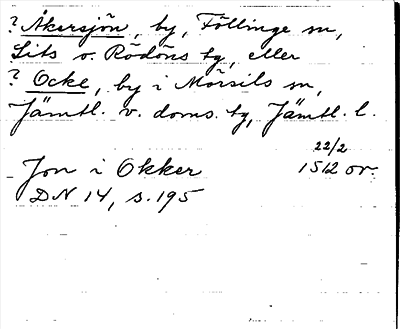 ? Åkersjön, by, Föllinge sn,
Lits o. Rödöns tg, eller
? Ocke, by i Mörsils sn,
Jämtl. v. doms. tg, Jämtl. l.
22/2
Jon i Okker 1512 or.
DN 14, s. 195